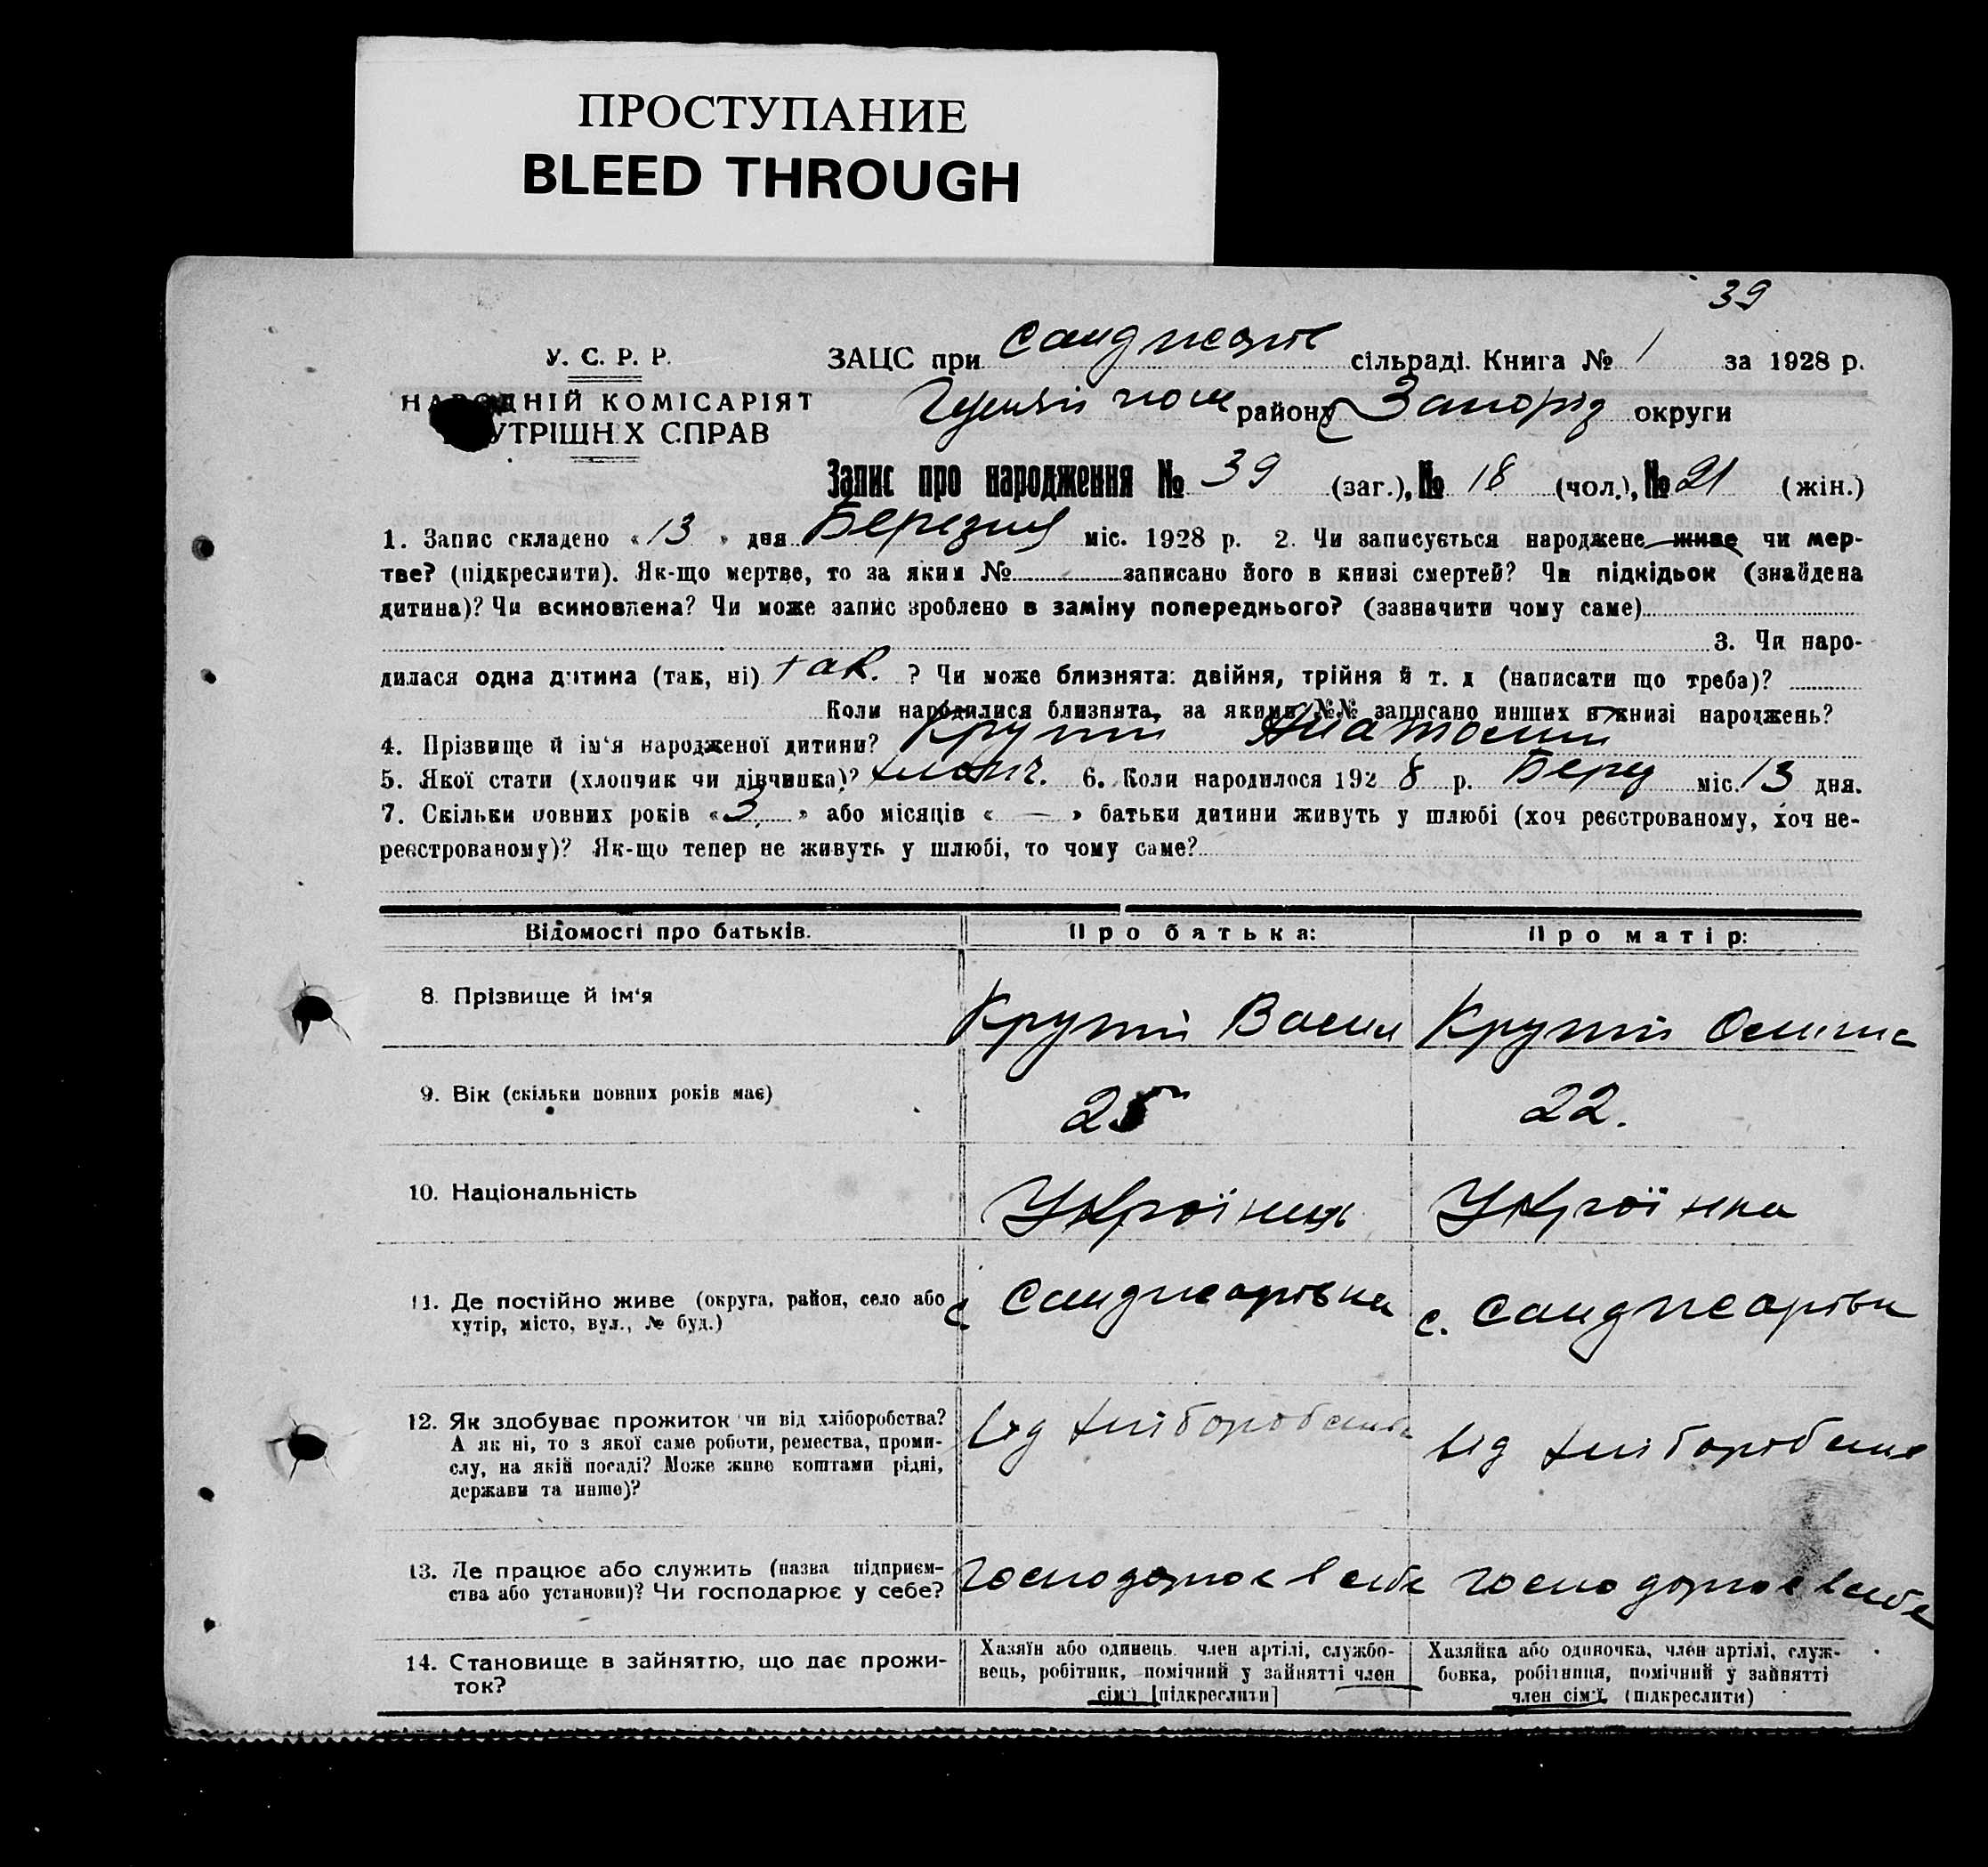 ПРОСТУПАНИЕ
BLEED THROUGH
39
У. С. Р. Р.
ЗАЦС при Санджарів сільраді. Книга № 1 за 1928 р.
НАРОДНІЙ КОМІСАРІЯТ
району Запоріз округи
УТРІШН Х СПРАВ
Запис про народження № 39 (заг.), № 18 (чол.), № 21 (жін.)
1. Запис складено « 13 » дня Березня міс. 1928 р. 2. Чи записується народжене живе чи мер-
тве? (підкреслити). Як-що мертве, то за яким № записано його в книзі смертей? Чи підкідьок (знайдена
дитина)? Чи всиновлена? Чи може запис зроблено в заміну попереднього? (зазначити чому саме)
3. Чи наро-
дилася одна дитина (так, ні) так. ? Чи може близнята: двійня, трійня й т. д (написати що треба)?
Коли народилися близнята, за якими №№ записано инших в книзі народжень?
4. Прізвище й ім'я народженої дитини? Крупій
5. Якої стати (хлопчик чи дівчинка)? хлопч. 6. Коли народилося 192 8 р. Берез міс. 13 дня.
7. Скільки повних років « 3 » або місяців « — » батьки дитини живуть у шлюбі (хоч реєстрованому, хоч не-
реєстрованому)? Як-що тепер не живуть у шлюбі, то чому саме?
Відомості про батьків. Про батька: Про матір:
8. Прізвище й ім'я Крупій Васил Крупій
9. Вік (скільки повних років має) 25 22.
10. Національність Українець Українка
11. Де постійно живе (округа, район, село або
хутір, місто, вул., № буд.) с. Санджарівка с. Санджарівк
12. Як здобуває прожиток чи від хліборобства?
А як ні, то з якої саме роботи, ремества, проми-
слу, на якій посаді? Може живе коштами рідні,
держави та инше)? від хліборобства від хліборобства
13. Де працює або служить (назва підприєм-
ства або установи)? Чи господарює у себе? господарює в себе господарює в себе
14. Становище в зайняттю, що дає прожи-
ток?
Хазяїн або одинець член артілі, службо-
вець, робітник, помічний у зайнятті член
сім'ї [підкреслити]
Хазяйка або одиночка, член артілі, служ-
бовка, робітниця, помічний у зайнятті
член сім'ї (підкреслити)